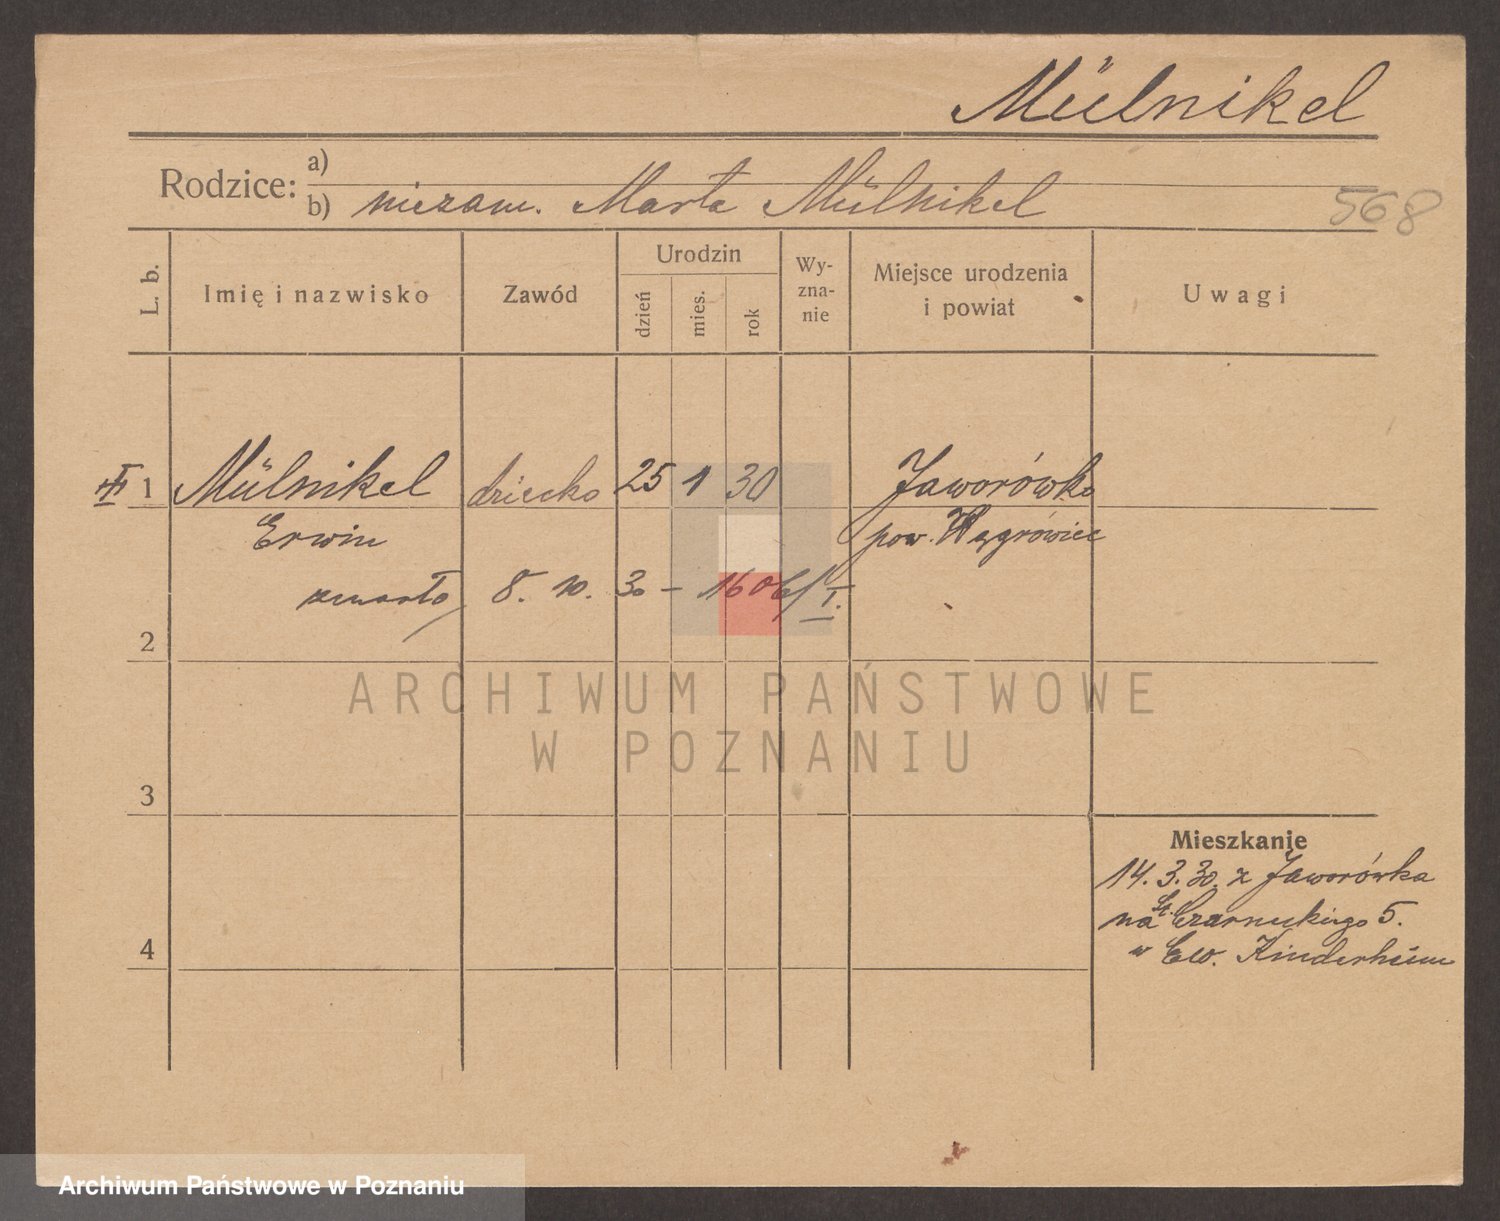 Mülnikel
Rodzice:
a)
b) niezam. Marta Mülnikel
568
L. b.
Imię i nazwisko
Zawód
Urodzin
dzień
mies.
rok
Wy-
zna-
nie
Miejsce urodzenia
i powiat
Uwagi
1 Mülnikel dziecko 25 1 30 Jaworówko
Erwin pow. Wągrówiec
zmarło 8. 10. 30 – 1606/I.
2
ARCHIWUM PAŃSTWOWE
W POZNANIU
3
Mieszkanie
14. 3. 30. z Jaworówka
na St. Czarneckiego 5.
4
w Ew. Kinderheim
Archiwum Państwowe w Poznaniu